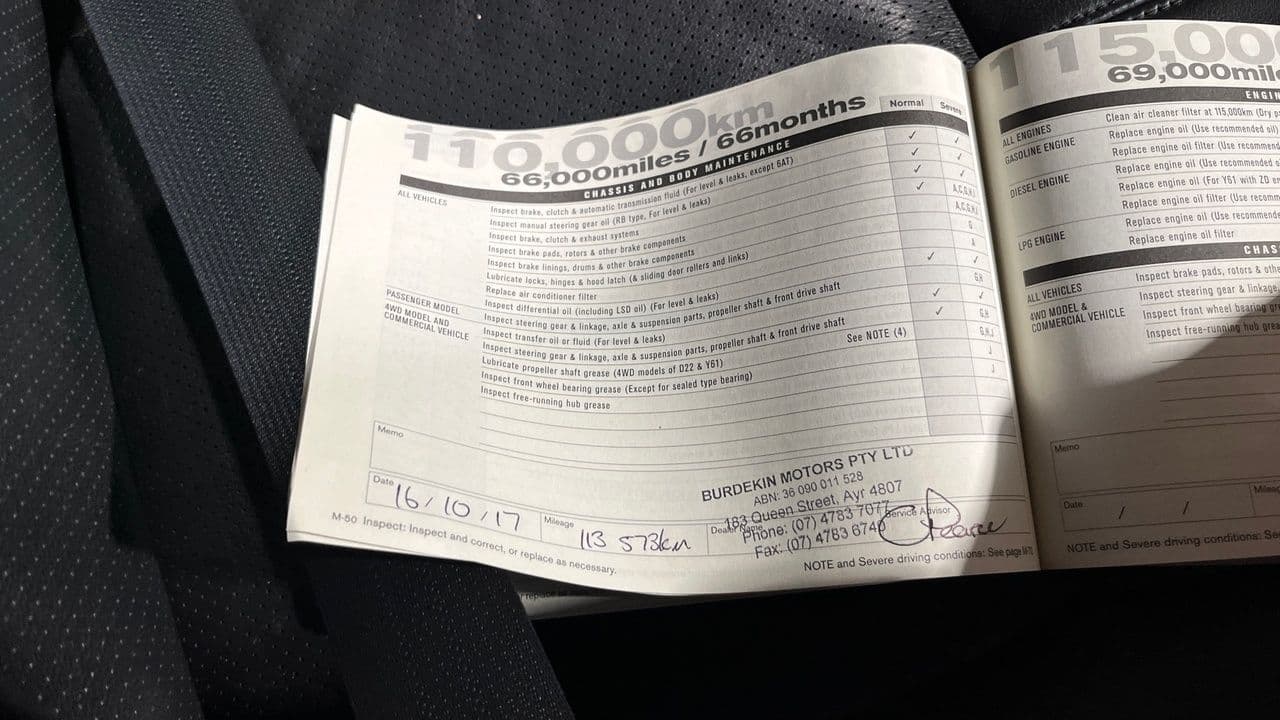 110,000km
66,000miles / 66months
Normal Severe
CHASSIS AND BODY MAINTENANCE
ALL VEHICLES
Inspect brake, clutch & automatic transmission fluid (For level & leaks, except 6AT) ✓ ✓
Inspect manual steering gear oil (RB type, For level & leaks) ✓ ✓
Inspect brake, clutch & exhaust systems ✓ ✓
Inspect brake pads, rotors & other brake components ✓ A,C,G,H,I
Inspect brake linings, drums & other brake components A,C,G,H,I
Lubricate locks, hinges & hood latch (& sliding door rollers and links) G
Replace air conditioner filter A
Inspect differential oil (including LSD oil) (For level & leaks) ✓ ✓
PASSENGER MODEL
Inspect steering gear & linkage, axle & suspension parts, propeller shaft & front drive shaft G,H
4WD MODEL AND
COMMERCIAL VEHICLE
Inspect transfer oil or fluid (For level & leaks) ✓ ✓
Inspect steering gear & linkage, axle & suspension parts, propeller shaft & front drive shaft ✓ G,H
Lubricate propeller shaft grease (4WD models of D22 & Y61) See NOTE (4) G,H,J
Inspect front wheel bearing grease (Except for sealed type bearing) J
Inspect free-running hub grease J
Memo
Date 16/10/17
Mileage 113 573km
Dealer Name
BURDEKIN MOTORS PTY LTD
ABN: 36 090 011 528
183 Queen Street, Ayr 4807
Phone: (07) 4783 7077
Fax: (07) 4783 6740
Service Advisor
M-50 Inspect: Inspect and correct, or replace as necessary.
NOTE and Severe driving conditions: See page M-70
115,00
69,000mile
ENGIN
ALL ENGINES
Clean air cleaner filter at 115,000km (Dry
GASOLINE ENGINE
Replace engine oil (Use recommended oil)
Replace engine oil filter (Use recommend
DIESEL ENGINE
Replace engine oil (Use recommended
Replace engine oil (For Y61 with ZD en
Replace engine oil filter (Use recomm
LPG ENGINE
Replace engine oil (Use recommend
Replace engine oil filter
CHAS
ALL VEHICLES
Inspect brake pads, rotors & othe
4WD MODEL &
COMMERCIAL VEHICLE
Inspect steering gear & linkage,
Inspect front wheel bearing g
Inspect free-running hub grea
Memo
Date / /
Mileag
NOTE and Severe driving conditions: Se